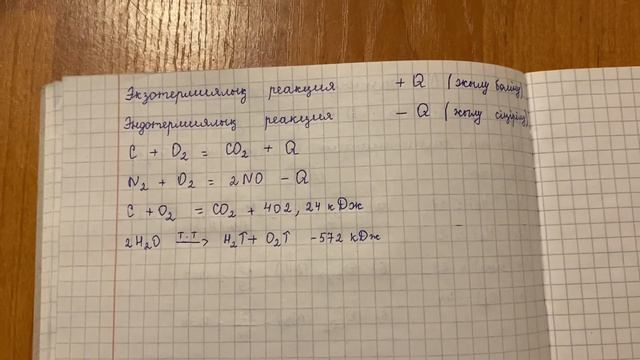 Экзотермиялық реакция + Q (жылу бөлінеді)
Эндотермиялық реакция − Q (жылу сіңіріледі)
C + O₂ = CO₂ + Q
N₂ + O₂ = 2NO − Q
C + O₂ = CO₂ + 402,24 кДж
2H₂O —т.т→ H₂↑ + O₂↑ −572 кДж